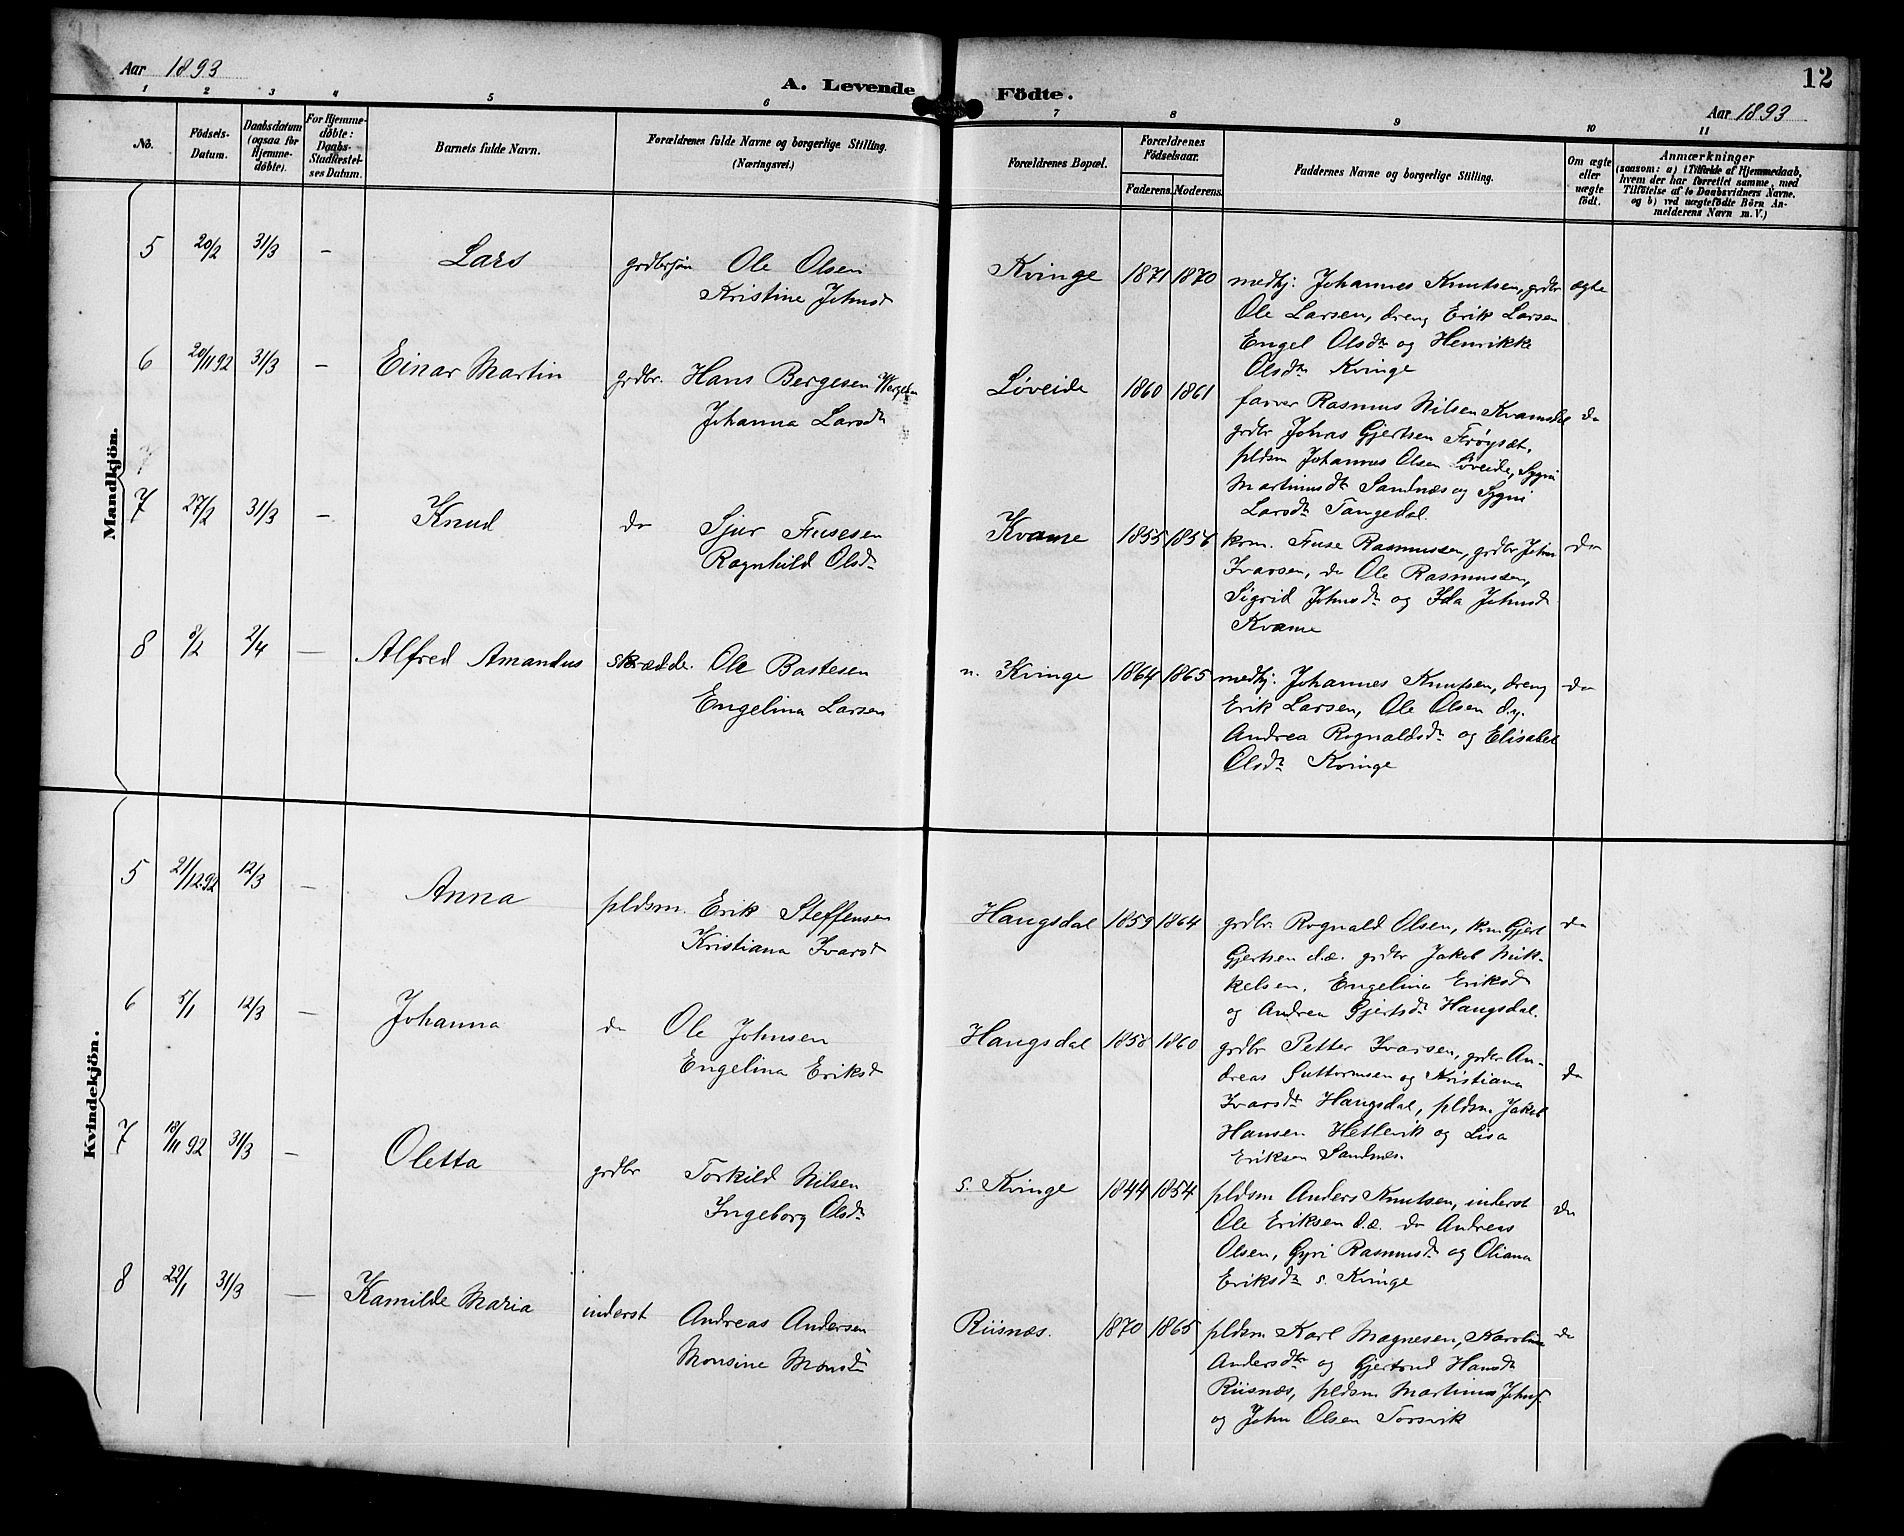 Aar 1893
A. Levende Födte.
12
Aar 1893
1 2 3 4 5 6 7 8 9 10 11
No.
Födsels-Datum.
Daabsdatum (ogsaa for Hjemme-døbte).
For Hjemme-døbte: Daabs-Stadfæstel-ses Datum.
Barnets fulde Navn.
Forældrenes fulde Navne og borgerlige Stilling. (Næringsvei.)
Forældrenes Bopæl.
Forældrenes Födselsaar.
Faderens. Moderens.
Faddernes Navne og borgerlige Stilling.
Om ægte eller uægte födt.
Anmærkninger
(saasom: a) i Tilfælde af Hjemmedaab,
hvem der har forrettet samme, med
Tilföielse af to Daabsvidners Navne,
og b) ved uægtefödte Börn An-
melderens Navn m. V.)
Mandkjön.
5 20/2 31/3 – Lars grdbrsøn Ole Olsen
Kristine Johnsd
Kvinge 1871 1870 medhj. Johannes Knutsen, grdbr ægte
Ole Larsen, dreng Erik Larsen
Engel Olsdtr og Henrikke
Olsdtr Kvinge
6 20/11 92 31/3 – Einar Martin grdbr. Hans Bergesen
Johanna Larsdtr
Løveide 1860 1861 farver Rasmus Nilsen Kvamsdal do
grdbr Johns Gjertsen Frøyset,
pldsm Johannes Olsen Løveide, Sygni
Martinusdtr Sandnæs og Sygni
Larsdtr Tangedal.
7
7 27/2 31/3 – Knud do Sjur Fusesen
Ragnhild Olsdtr
Kvame 1855 1856 krm. Fuse Rasmussen, grdbr John do
Ivarsen, do Ole Rasmussen,
Sigrid Johnsdtr og Ida Johnsd
Kvame
8 8/2 2/4 – Alfred Amandus skrædde. Ole Bastesen
Engelina Larsen
n. Kvinge 1864 1865 medhj. Johannes Knutsen, dreng do
Erik Larsen, Ole Olsen d.y.
Andrea Rognaldsdtr og Elisabet
Olsdtr Kvinge
Kvindekjön.
5 21/12 92 12/3 – Anna pldsm. Erik Steffensen
Kristiana Ivarsd
Haugsdal 1859 1864 grdbr. Rognald Olsen, krm Gjert do
Gjertsen d.æ. grdbr Jakob Mik-
kelsen, Engelina Eriksd
og Andrea Gjertsdtr Haugsdal.
6 5/1 12/3 – Johanna do Ole Johnsen
Engelina Eriksd
Haugsdal 1858 1860 grdbr Petter Ivarsen, grdbr An- do
dreas Guttormsen og Kristiana
Ivarsdtr Haugsdal, pldsm. Jakob
Hansen Hetlevik og Lisa
Eriksen Sandnæs.
7 18/11 92 31/3 – Oletta grdbr Torkild Nilsen
Ingeborg Olsdtr
s. Kvinge 1844 1854 pldsm Anders Knutsen, inderst do
Ole Eriksen d.æ. do Andreas
Olsen, Gyri Rasmusdtr og Oliana
Eriksdtr s. Kvinge
8 22/1 31/3 – Kamilde Maria inderst Andreas Andersen
Monsine Monsdtr
Riisnæs. 1870 1865 pldsm Karl Magnesen, Karoline do
Andersdtr og Gjertrud Hansdtr
Riisnæs, pldsm Martinus Johns.
og John Olsen Torsvik